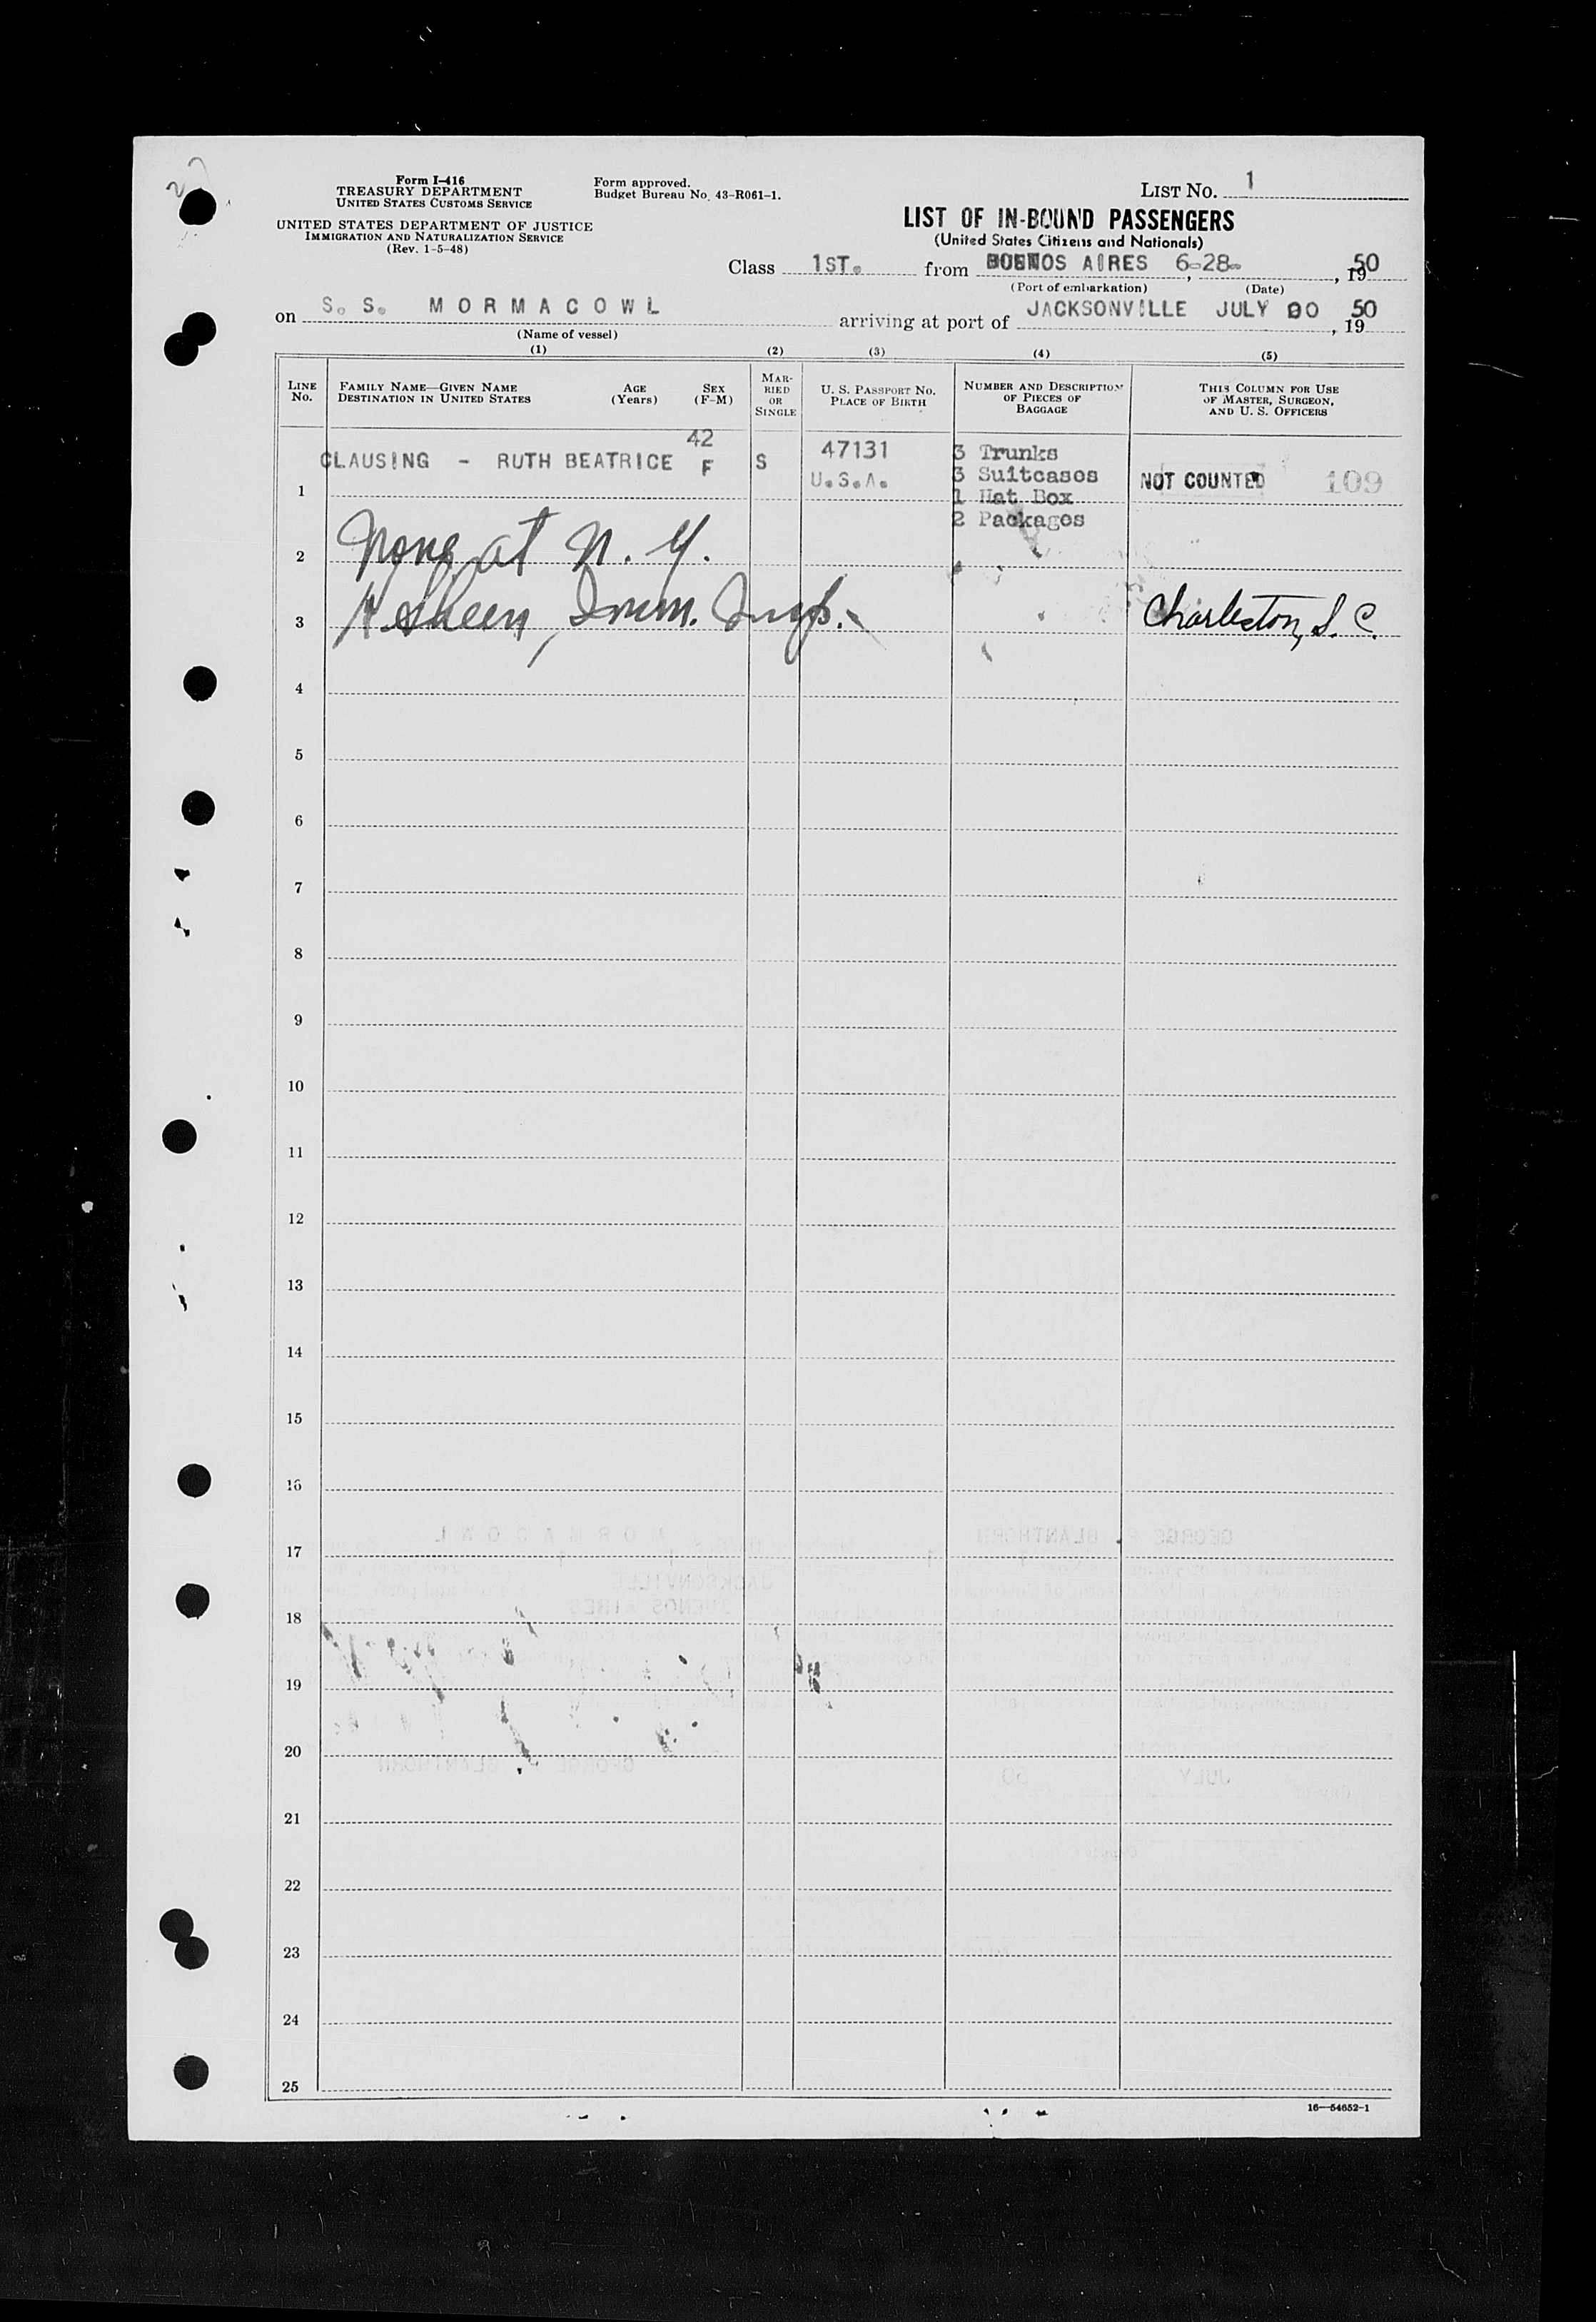 Form I-416
TREASURY DEPARTMENT
UNITED STATES CUSTOMS SERVICE
UNITED STATES DEPARTMENT OF JUSTICE
IMMIGRATION AND NATURALIZATION SERVICE
(Rev. 1-5-48)
Form approved.
Budget Bureau No. 43-R061-1.
LIST No. 1
LIST OF IN-BOUND PASSENGERS
(United States Citizens and Nationals)
Class 1ST. from BUENOS AIRES 6-28- , 1950
(Port of embarkation) (Date)
on S. S. MORMACOWL arriving at port of JACKSONVILLE JULY , 1950
(Name of vessel)
(1) (2) (3) (4) (5)
LINE No.
FAMILY NAME—GIVEN NAME
DESTINATION IN UNITED STATES
AGE (Years)
SEX (F-M)
MARRIED OR SINGLE
U. S. PASSPORT NO.
PLACE OF BIRTH
NUMBER AND DESCRIPTION OF PIECES OF BAGGAGE
THIS COLUMN FOR USE OF MASTER, SURGEON, AND U. S. OFFICERS
1 CLAUSING - RUTH BEATRICE 42 F S 47131 U.S.A.
3 Trunks
3 Suitcases
1 Hat Box
2 Packages
NOT COUNTED 109
2 None at N. Y.
3 Imm. Insp. Charleston, S. C.
4
5
6
7
8
9
10
11
12
13
14
15
16
17
18
19
20
21
22
23
24
25
16—54652-1